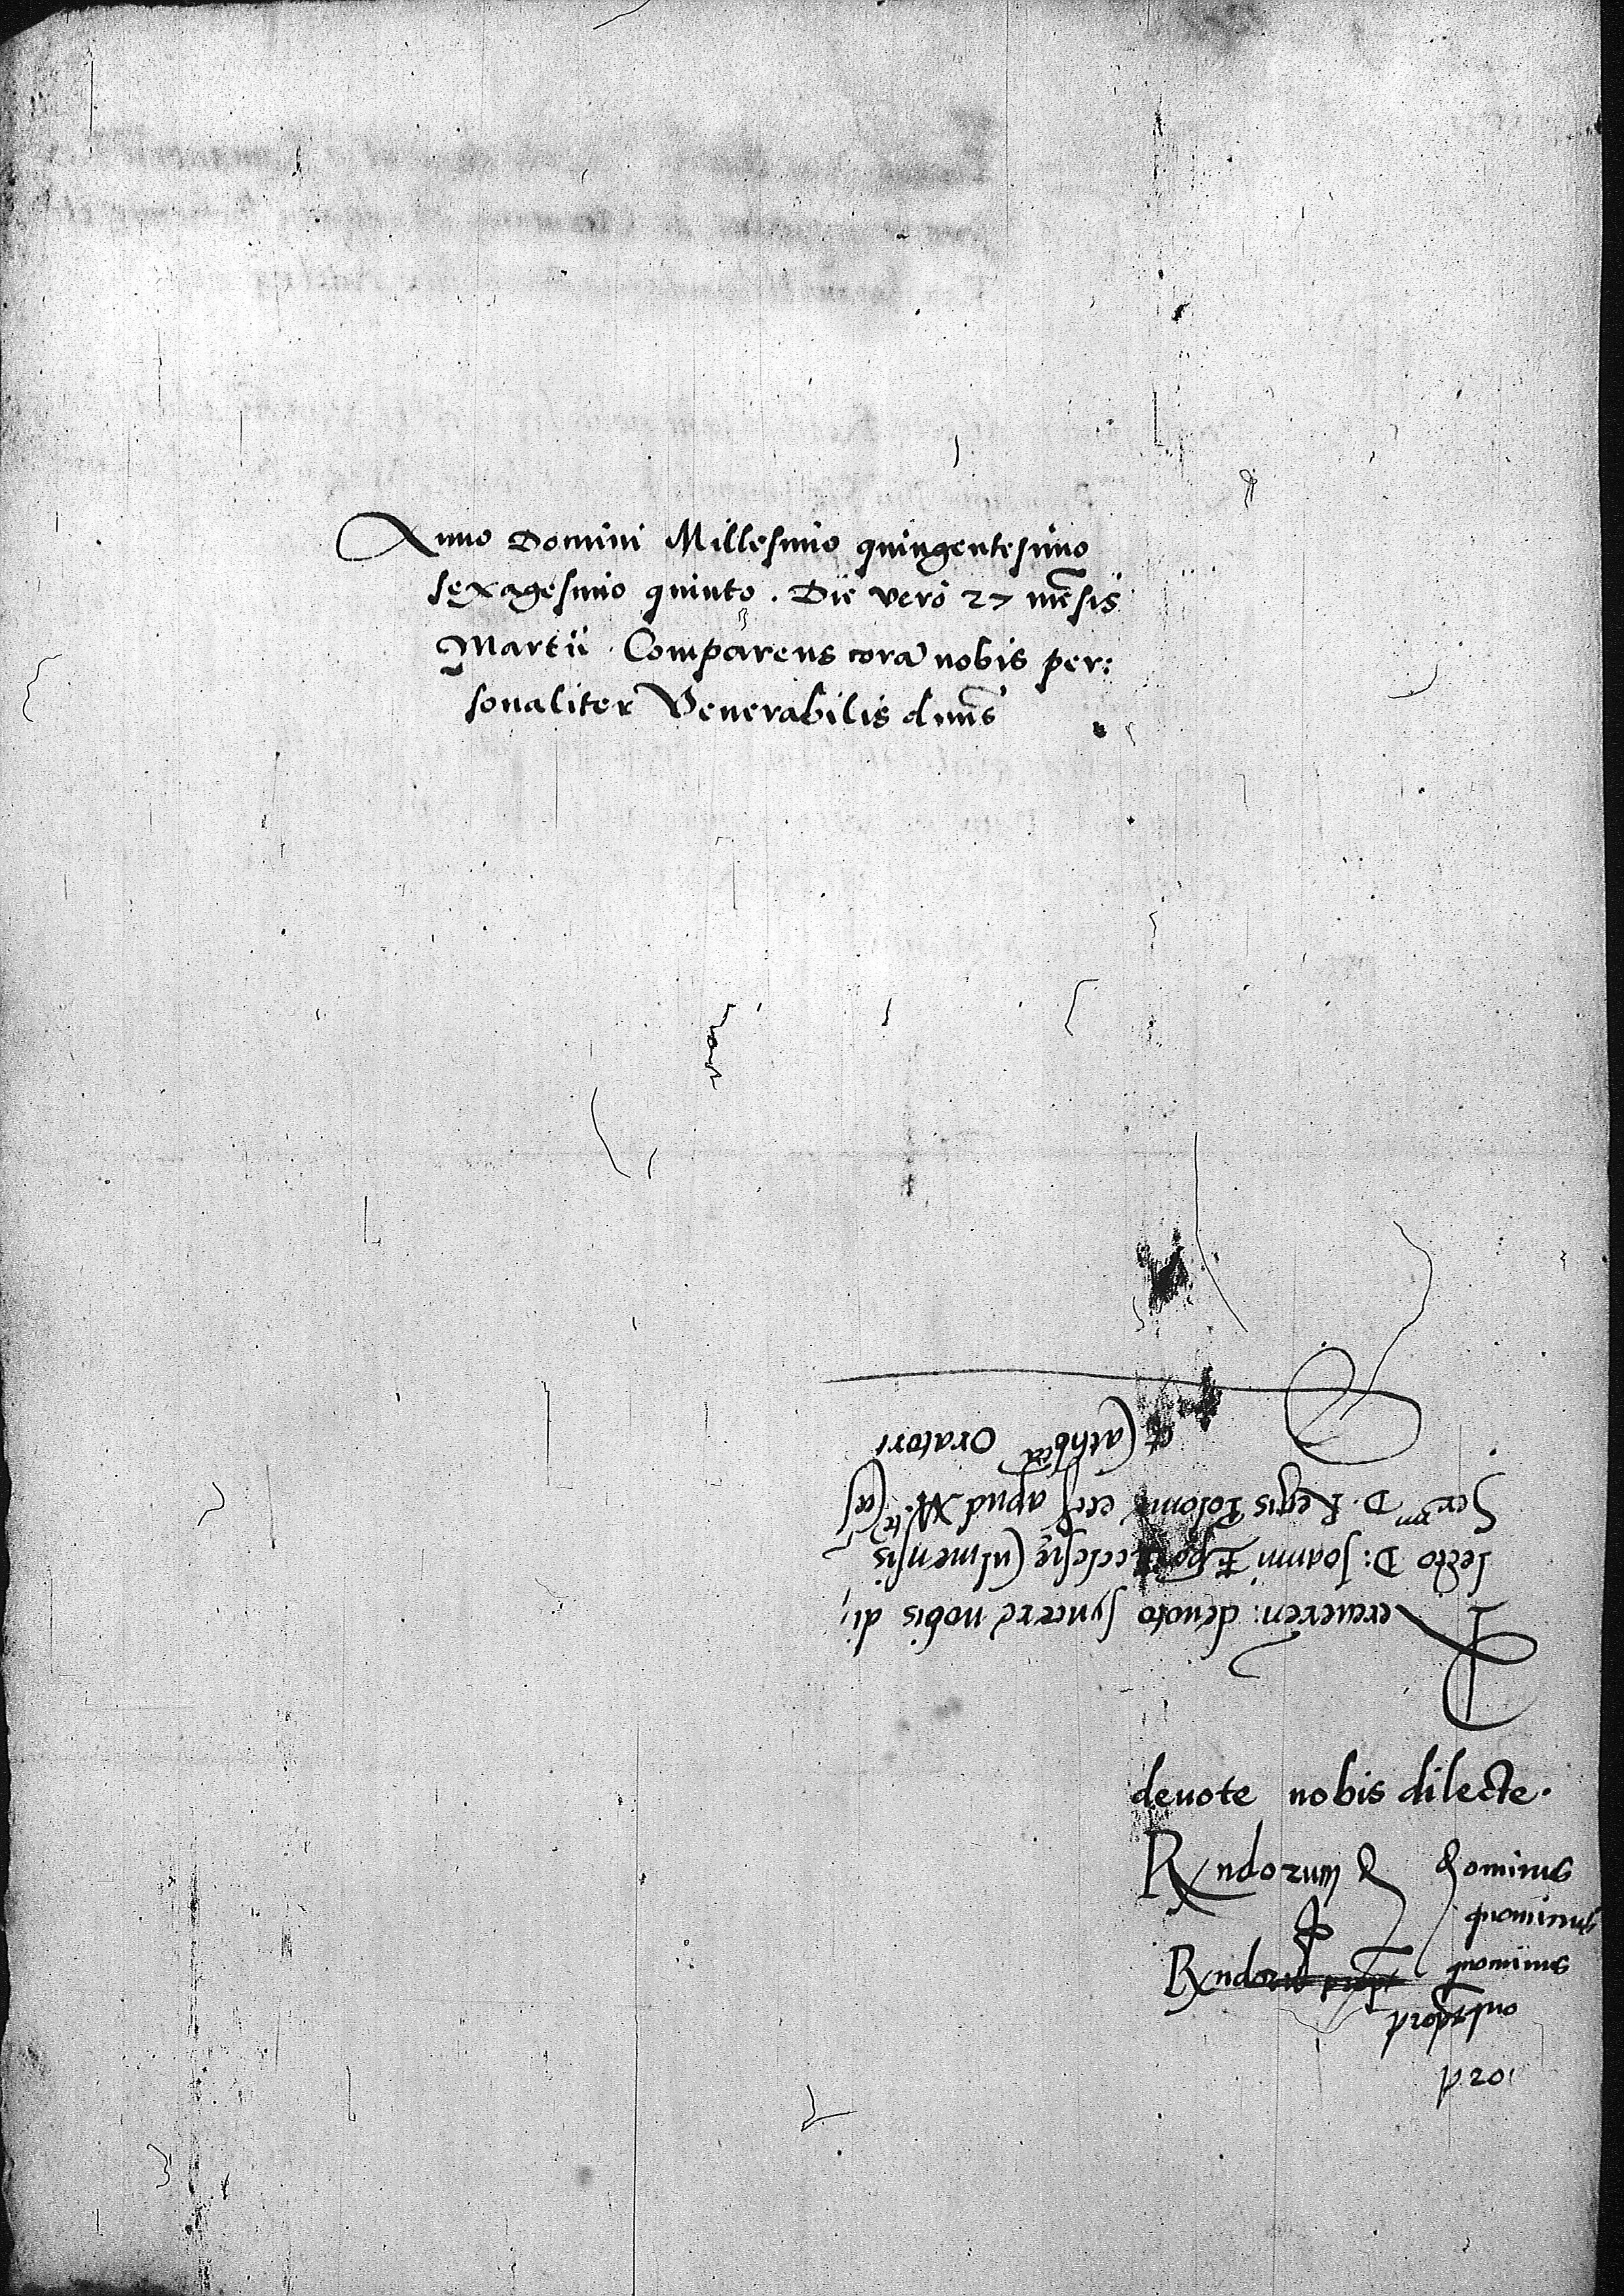 Anno Domini Millesimo quingentesimo
sexagesimo quinto. Die vero 27 mēsis
Martii Comparens corā nobis per:
sonaliter Venerabilis dnūs
Reueren: deuoto syncere nobis di,
lecto D: Joanni Epō Ecclesię Culmensis
Ser.mi D. Regis Polonię etc. apud M.tem Cæs
et Cathcā Oratori
deuote nobis dilecte.
Rx̄ndorum D dominus
quominus
Rx̄ndor quominus
propt quo
pro